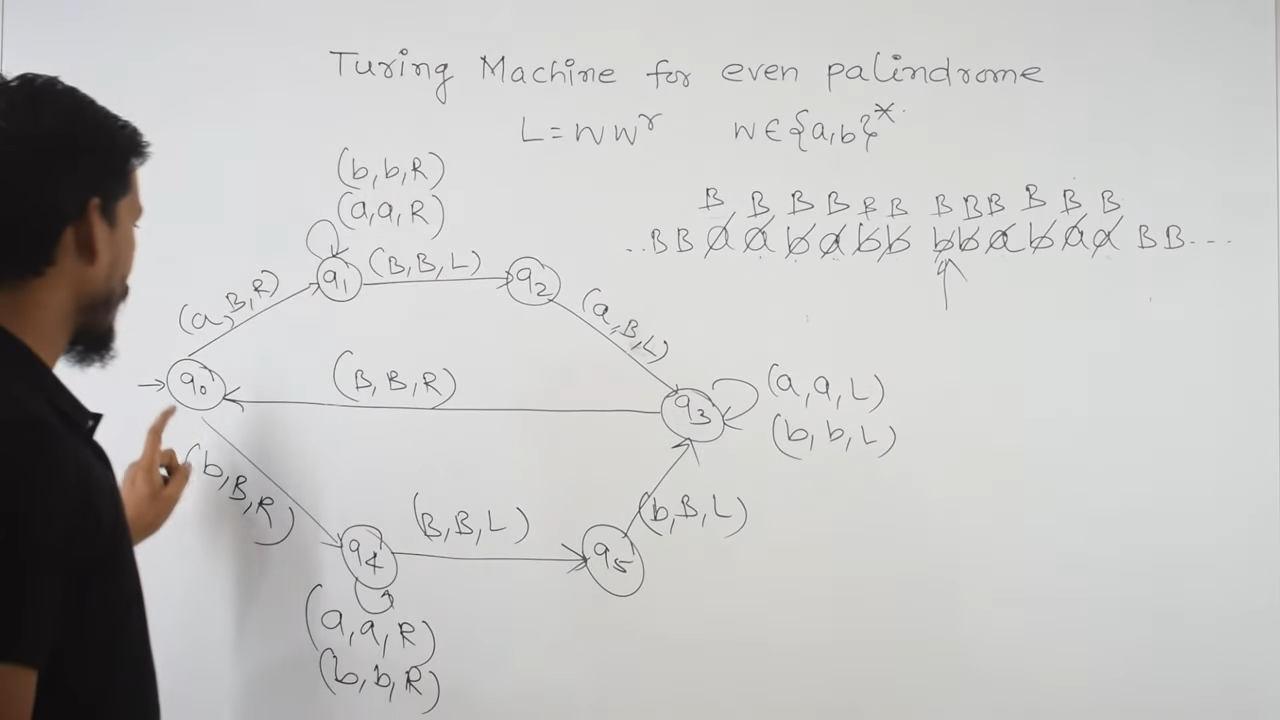 Turing Machine for even palindrome
L = w w^r w ∈ {a,b}*
B B B B B B B B B B B B
..BB a a b a b b b b a b a a BB---
(b, b, R)
(a, a, R)
q1
(B, B, L)
q2
(a, B, R)
(a, B, L)
q0
(B, B, R)
q3
(a, a, L)
(b, b, L)
(b, B, R)
(B, B, L)
(b, B, L)
q4
q5
(a, a, R)
(b, b, R)